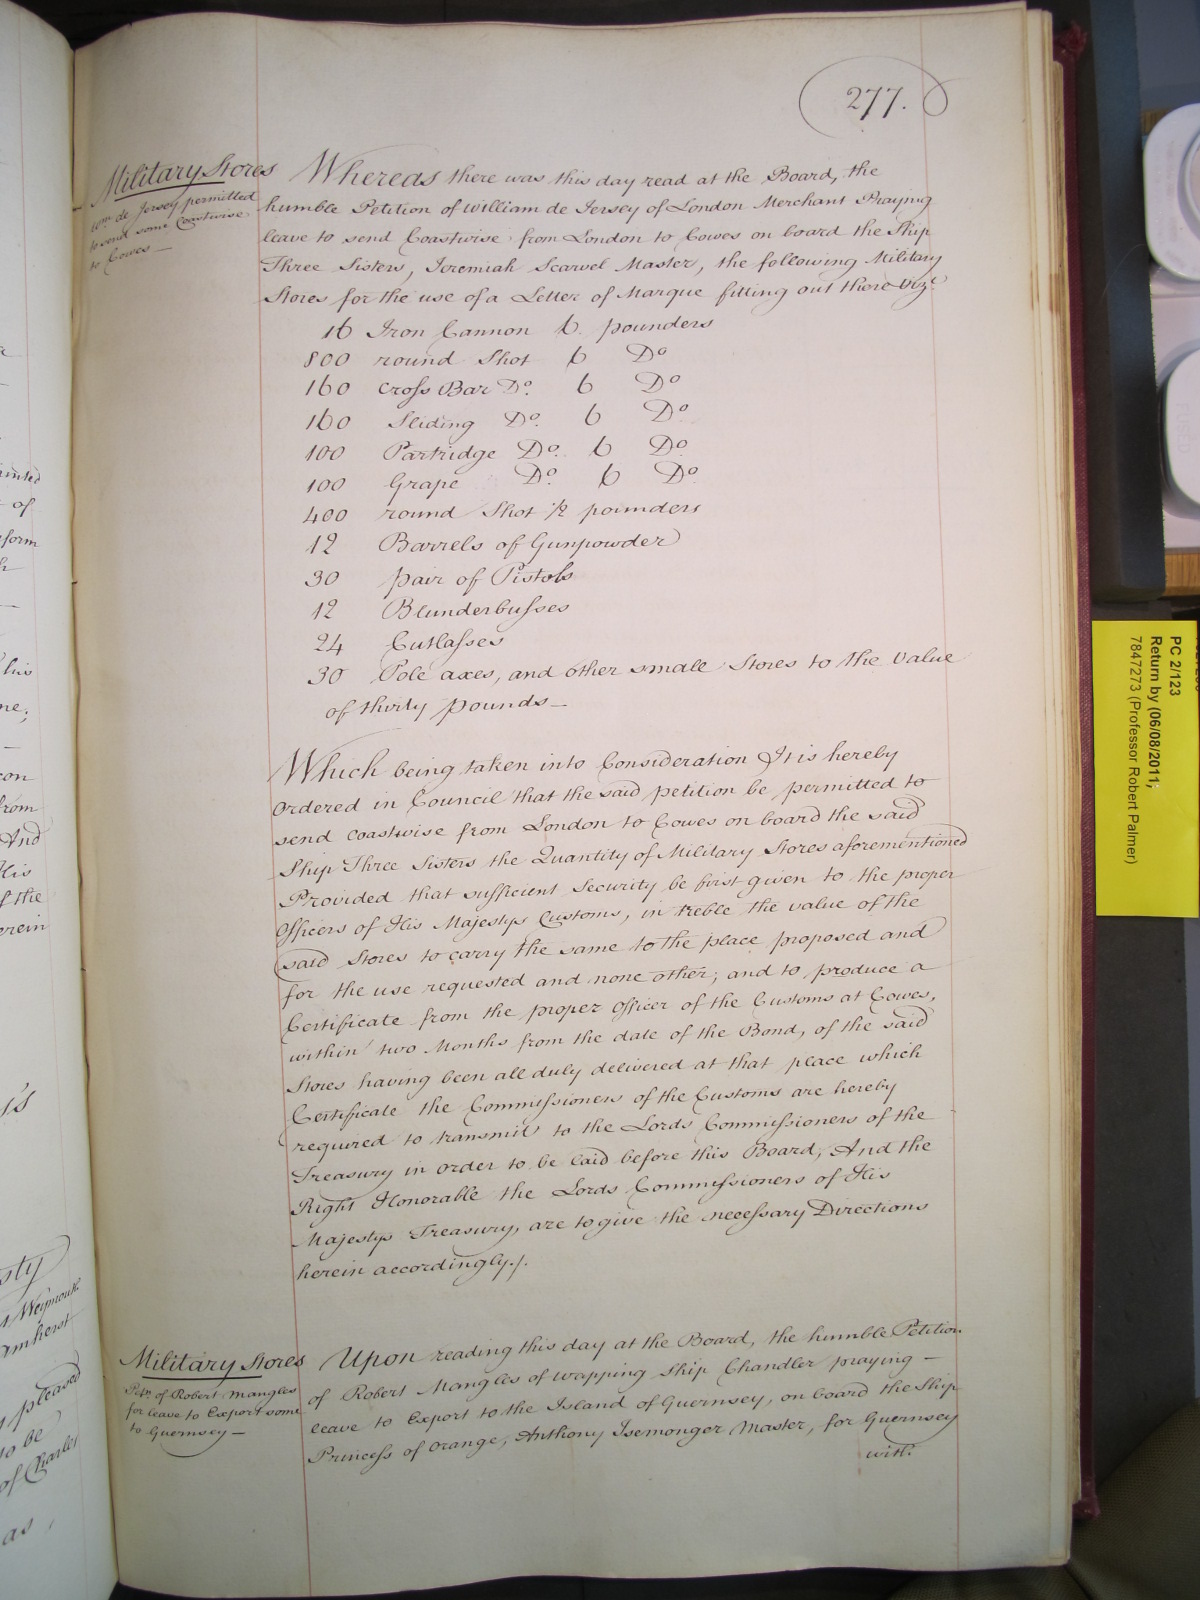 277.
Military Stores
Wm. de Jersey permitted
to send some Coastwise
to Cowes —
Whereas there was this day read at the Board, the
humble Petition of William de Jersey of London Merchant Praying
leave to send Coastwise from London to Cowes on board the Ship
Three Sisters, Jeremiah Scarvel Master, the following Military
Stores for the use of a Letter of Marque fitting out there Vizt.
16 Iron Cannon 6. pounders
800 round Shot 6 Do
160 cross Bar Do. 6 Do
160 Sliding Do. 6 Do
100 Partridge Do. 6 Do
100 Grape Do. 6 Do
400 round Shot 1/2 pounders
12 Barrels of Gunpowder
30 pair of Pistols
12 Blunderbusses
24 Cutlasses
30 Pole axes, and other small Stores to the Value
of thirty pounds —
Which being taken into Consideration It is hereby
ordered in Council that the said petition be permitted to
send coastwise from London to Cowes on board the said
Ship Three Sisters the Quantity of Military Stores aforementioned
Provided that sufficient Security be first given to the proper
Officers of His Majestys Customs, in treble the value of the
said Stores to carry the same to the place proposed and
for the use requested and none other; and to produce a
Certificate from the proper Officer of the Customs at Cowes,
within two Months from the date of the Bond, of the said
Stores having been all duly delivered at that place which
Certificate the Commissioners of the Customs are hereby
required to transmit to the Lords Commissioners of the
Treasury in order to be laid before this Board; And the
Right Honorable the Lords Commissioners of His
Majestys Treasury, are to give the necessary Directions
herein accordingly./.
Military Stores
Petn. of Robert Mangles
for leave to Export some
to Guernsey —
Upon reading this day at the Board, the humble Petition
of Robert Mangles of Wapping Ship Chandler praying —
leave to Export to the Island of Guernsey, on board the Ship
Princess of Orange, Anthony Isemonger Master, for Guernsey
with
of
form
his
me;
con
from
And
His
of the
erein
sty
Weymouth
Amherst
pleased
to be
of Charles
as,
PC 2/123
Return by (06/08/2011;
7847273 (Professor Robert Palmer)